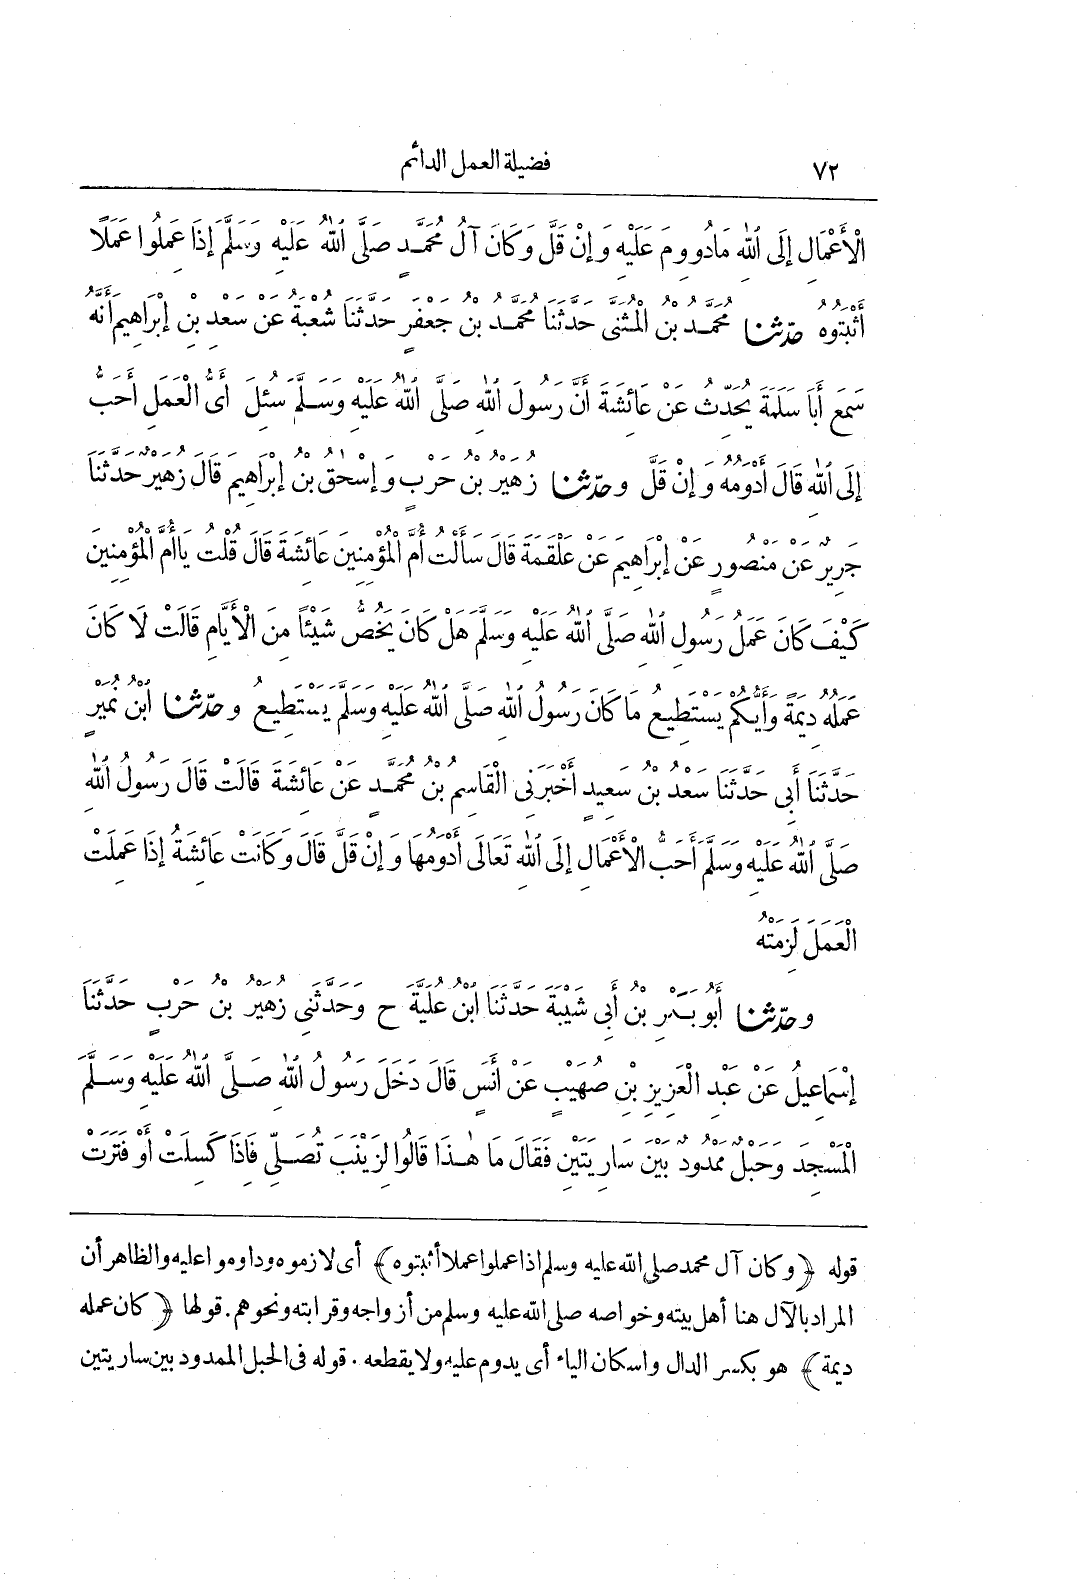 ٧٢ فضيلة العمل الدائم
الْأَعْمَالِ إِلَى اللهِ مَادُووِمَ عَلَيْهِ وَإِنْ قَلَّ وَكَانَ آلُ مُحَمَّدٍ صَلَّى اللهُ عَلَيْهِ وَسَلَّمَ إِذَا عَمِلُوا عَمَلًا
أَثْبَتُوهُ حدّثنا مُحَمَّدُ بْنُ الْمُثَنَّى حَدَّثَنَا مُحَمَّدُ بْنُ جَعْفَرٍ حَدَّثَنَا شُعْبَةُ عَنْ سَعْدِ بْنِ إِبْرَاهِيمَ أَنَّهُ
سَمِعَ أَبَا سَلَمَةَ يُحَدِّثُ عَنْ عَائِشَةَ أَنَّ رَسُولَ اللهِ صَلَّى اللهُ عَلَيْهِ وَسَلَّمَ سُئِلَ أَىُّ الْعَمَلِ أَحَبُّ
إِلَى اللهِ قَالَ أَدْوَمُهُ وَإِنْ قَلَّ وحدّثنا زُهَيْرُ بْنُ حَرْبٍ وَإِسْحٰقُ بْنُ إِبْرَاهِيمَ قَالَ زُهَيْرٌ حَدَّثَنَا
جَرِيرٌ عَنْ مَنْصُورٍ عَنْ إِبْرَاهِيمَ عَنْ عَلْقَمَةَ قَالَ سَأَلْتُ أُمَّ الْمُؤْمِنِينَ عَائِشَةَ قَالَ قُلْتُ يَاأُمَّ الْمُؤْمِنِينَ
كَيْفَ كَانَ عَمَلُ رَسُولِ اللهِ صَلَّى اللهُ عَلَيْهِ وَسَلَّمَ هَلْ كَانَ يَخُصُّ شَيْئًا مِنَ الْأَيَّامِ قَالَتْ لَا كَانَ
عَمَلُهُ دِيمَةً وَأَيُّكُمْ يَسْتَطِيعُ مَا كَانَ رَسُولُ اللهِ صَلَّى اللهُ عَلَيْهِ وَسَلَّمَ يَسْتَطِيعُ وحدّثنا ابْنُ نُمَيْرٍ
حَدَّثَنَا أَبِى حَدَّثَنَا سَعْدُ بْنُ سَعِيدٍ أَخْبَرَنِى الْقَاسِمُ بْنُ مُحَمَّدٍ عَنْ عَائِشَةَ قَالَتْ قَالَ رَسُولُ اللهِ
صَلَّى اللهُ عَلَيْهِ وَسَلَّمَ أَحَبُّ الْأَعْمَالِ إِلَى اللهِ تَعَالَى أَدْوَمُهَا وَإِنْ قَلَّ قَالَ وَكَانَتْ عَائِشَةُ إِذَا عَمِلَتِ
الْعَمَلَ لَزِمَتْهُ
وحدّثنا أَبُو بَكْرِ بْنُ أَبِى شَيْبَةَ حَدَّثَنَا ابْنُ عُلَيَّةَ ح وَحَدَّثَنِى زُهَيْرُ بْنُ حَرْبٍ حَدَّثَنَا
إِسْمَاعِيلُ عَنْ عَبْدِ الْعَزِيزِ بْنِ صُهَيْبٍ عَنْ أَنَسٍ قَالَ دَخَلَ رَسُولُ اللهِ صَلَّى اللهُ عَلَيْهِ وَسَلَّمَ
الْمَسْجِدَ وَحَبْلٌ مَمْدُودٌ بَيْنَ سَارِيَتَيْنِ فَقَالَ مَا هٰذَا قَالُوا لِزَيْنَبَ تُصَلِّى فَإِذَا كَسِلَتْ أَوْ فَتَرَتْ
قوله ﴿وكان آل محمد صلى الله عليه وسلم اذا عملوا عملا أثبتوه﴾ أى لازموه وداوموا عليه والظاهر أن
المراد بالآل هنا أهل بيته وخواصه صلى الله عليه وسلم من أزواجه وقرابته ونحوهم. قولها ﴿كان عمله
ديمة﴾ هو بكسر الدال واسكان الياء أى يدوم عليه ولا يقطعه. قوله فى الحبل الممدود بين ساريتين